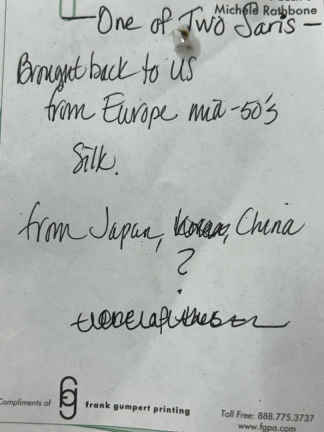 Michele Rathbone
— One of Two Saris —
Brought back to US
from Europe mid-50's
Silk.
from Japan, Korea, China
?
Compliments of
frank gumpert printing
Toll Free: 888.775.3737
www.fgpa.com